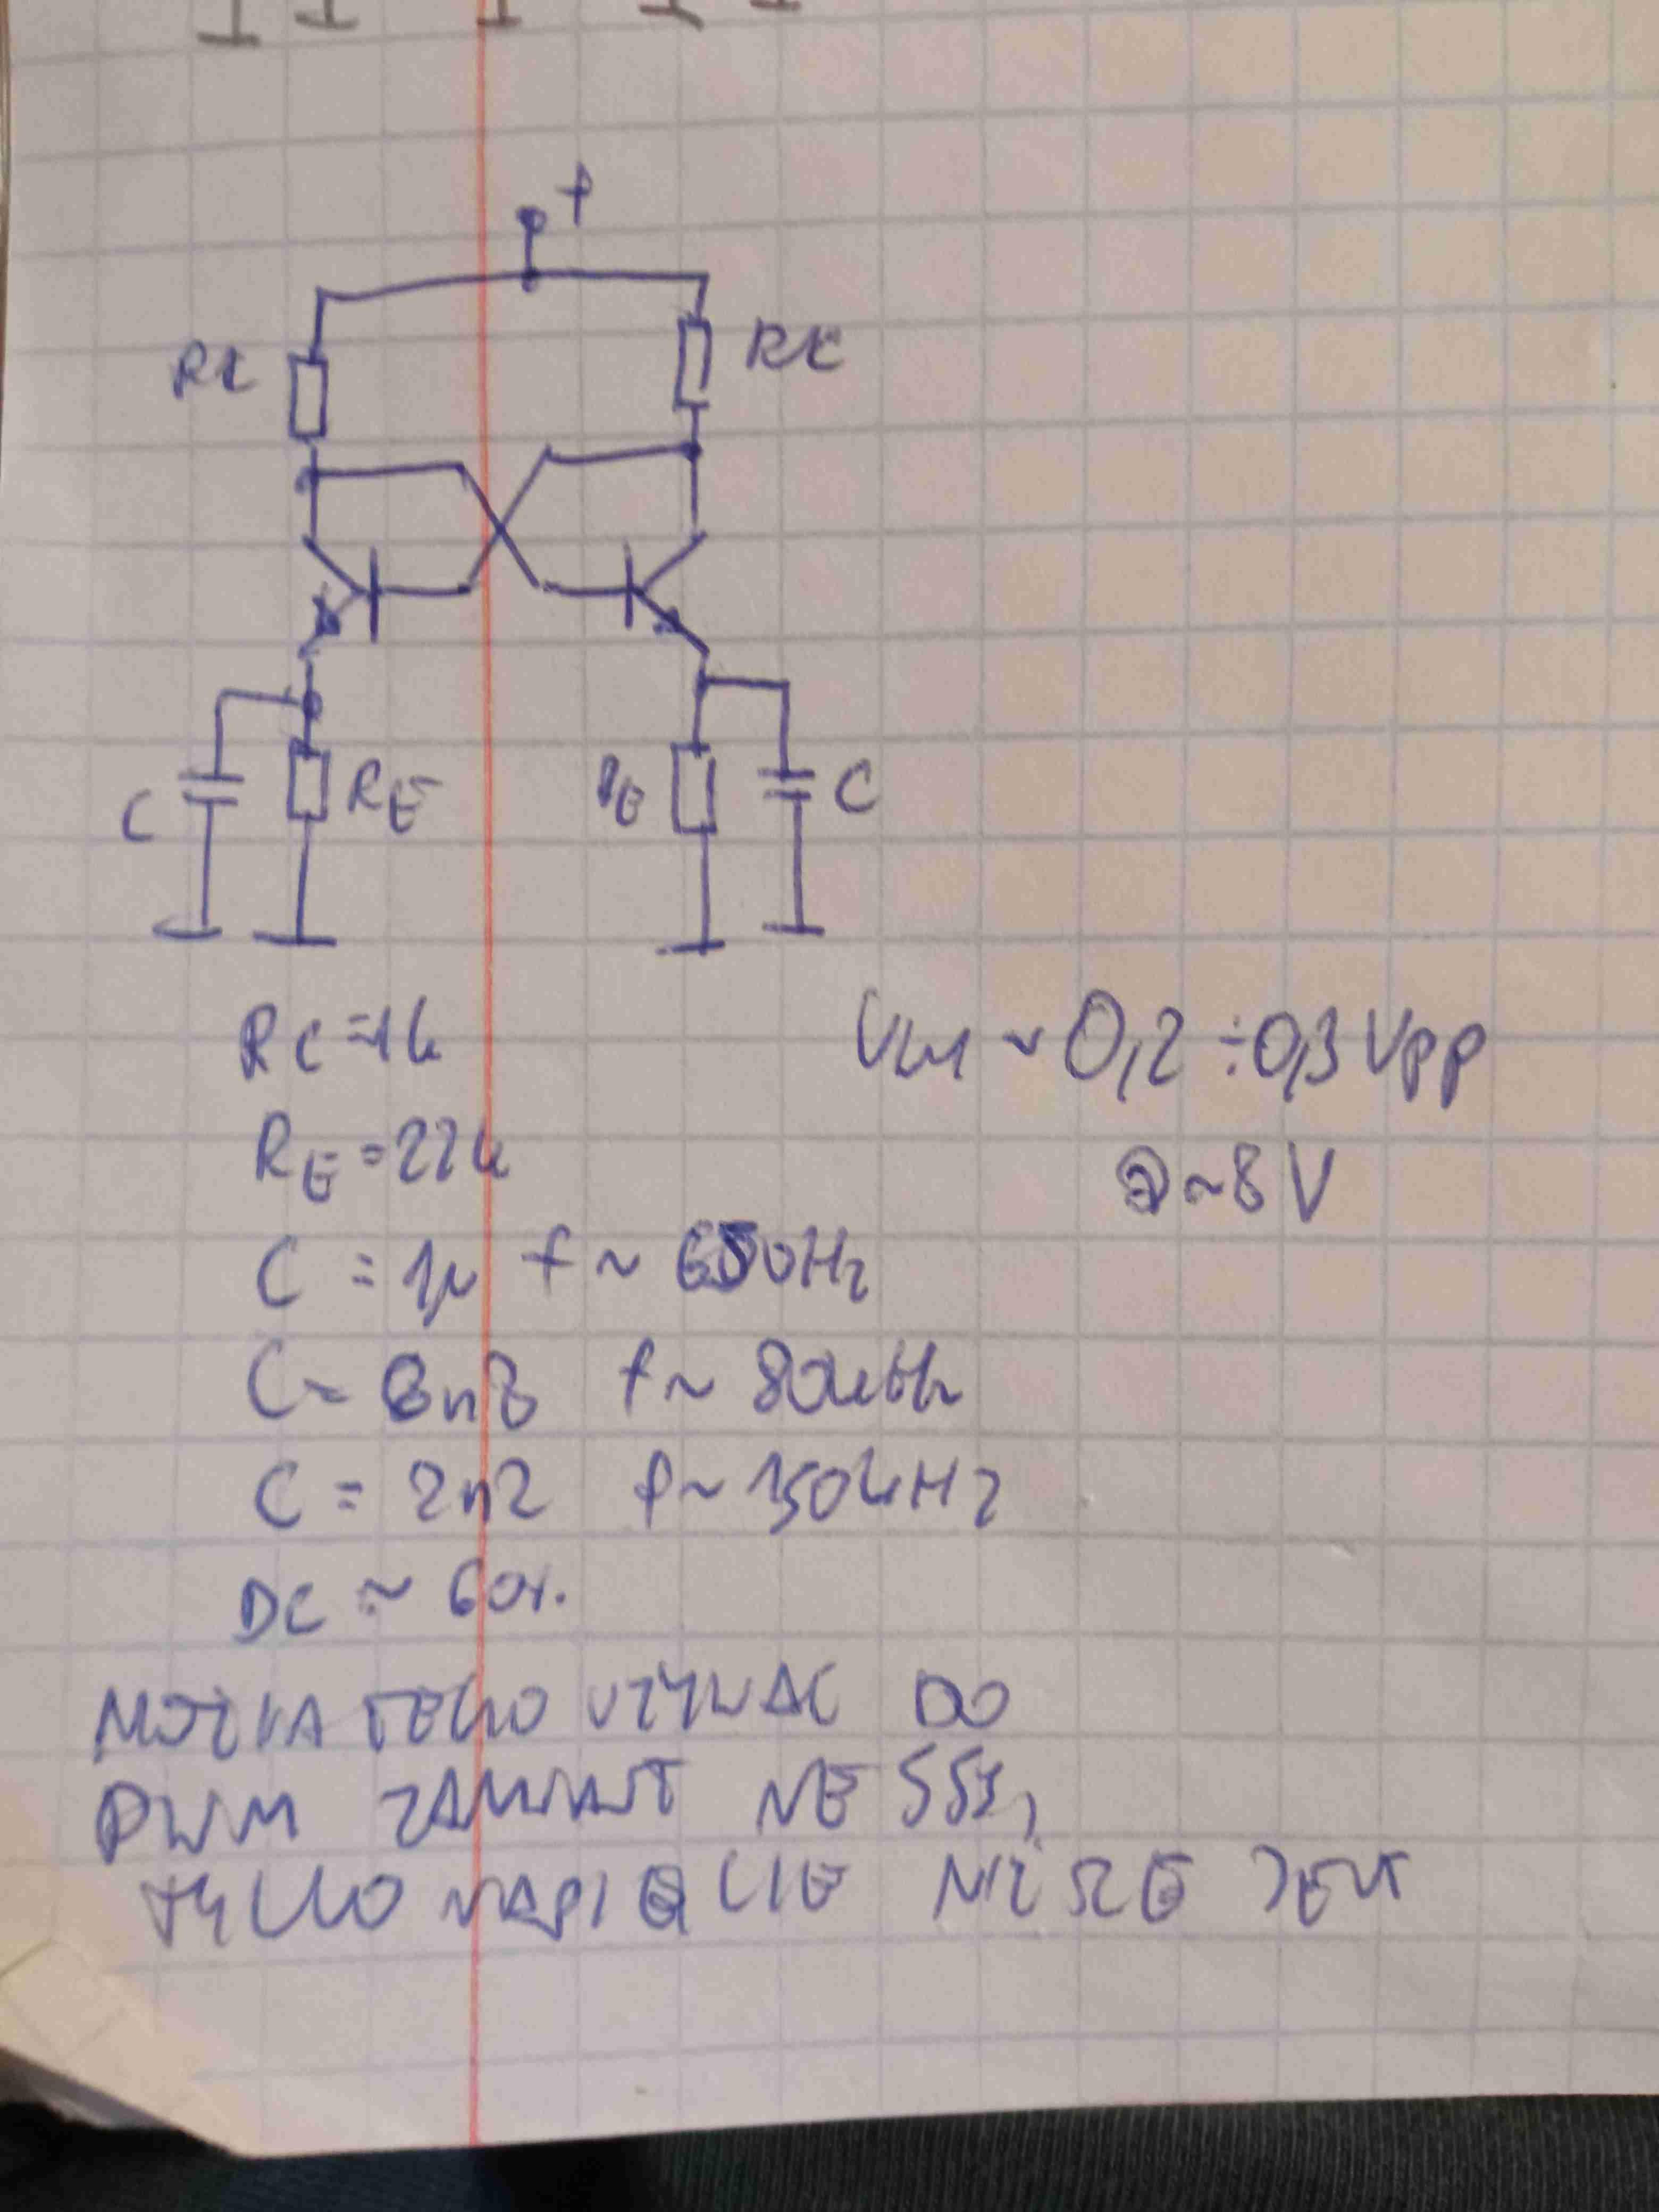 +
RC
RC
C
RE
RE
C
RC =1k
RE =22k
C = 1µ f ~ 650Hz
C = 8n2 f ~ 80kHz
C = 2n2 f ~ 150kHz
DC ~ 60%
~ 0,2 ÷0,3 Vpp
@ ~8 V
MOŻNA TEGO UŻYWAĆ DO
PWM ZAMIAST NE 555,
TYLKO NAPIĘCIE NIŻSZE JEST